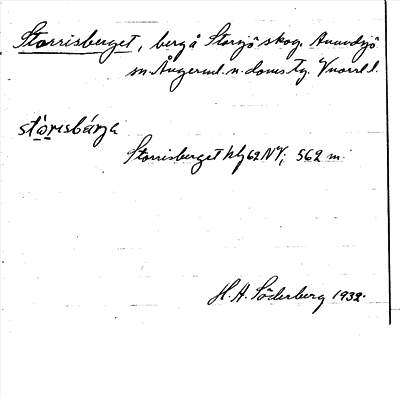 Storrisberget, berg å Storsjö skog. Anundsjö
sn. Ångerml. n. doms. tg. Vnorrl. l.
stòrisbárja
Storrisberget hbl 62 NV; 562 m.
H. A. Söderberg 1932.